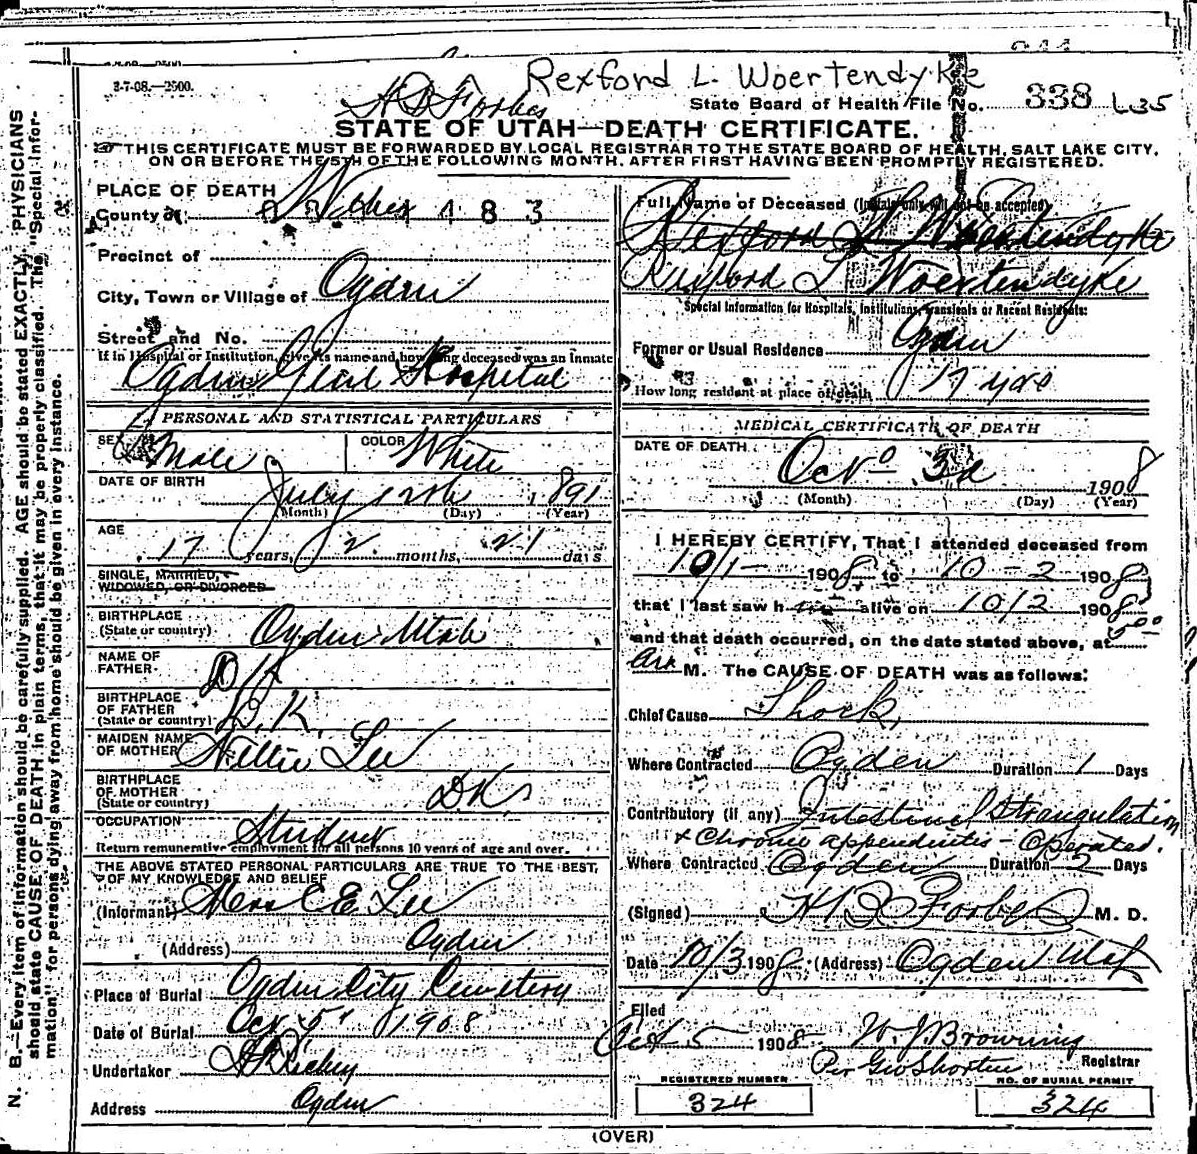 3-7-08.—2500.
H B Forbes
Rexford L. Woertendyke
State Board of Health File No. 338 L35
STATE OF UTAH—DEATH CERTIFICATE.
THIS CERTIFICATE MUST BE FORWARDED BY LOCAL REGISTRAR TO THE STATE BOARD OF HEALTH, SALT LAKE CITY,
ON OR BEFORE THE 5TH OF THE FOLLOWING MONTH, AFTER FIRST HAVING BEEN PROMPTLY REGISTERED.
N. B.—Every item of information should be carefully supplied. AGE should be stated EXACTLY. PHYSICIANS
should state CAUSE OF DEATH in plain terms, that it may be properly classified. The "Special Infor-
mation" for persons dying away from home should be given in every instance.
PLACE OF DEATH
County of: Weber 183
Precinct of
City, Town or Village of Ogden
Street and No.
If in Hospital or Institution, give its name and how long deceased was an inmate
Ogden Genl Hospital
PERSONAL AND STATISTICAL PARTICULARS
SEX Male COLOR White
DATE OF BIRTH July 12th 1891
(Month) (Day) (Year)
AGE
17 years, 2 months, 21 days
SINGLE, MARRIED,
WIDOWED, OR DIVORCED
BIRTHPLACE
(State or country) Ogden Utah
NAME OF
FATHER D K
BIRTHPLACE
OF FATHER
(State or country) D.K.
MAIDEN NAME
OF MOTHER Nellie Lee
BIRTHPLACE
OF MOTHER
(State or country) DK
OCCUPATION Student
Return remunerative employment for all persons 10 years of age and over.
THE ABOVE STATED PERSONAL PARTICULARS ARE TRUE TO THE BEST
OF MY KNOWLEDGE AND BELIEF
(Informant) C E Lee
(Address) Ogden
Place of Burial Ogden City Cemetery
Date of Burial Oct 5" 1908
Undertaker
Address Ogden
Full Name of Deceased (Initials only will not be accepted)
Rexford W Woertendyke
Rexford L Woertendyke
Special Information for Hospitals, Institutions, Transients or Recent Residents:
Former or Usual Residence Ogden
How long resident at place of death 17 yrs
MEDICAL CERTIFICATE OF DEATH
DATE OF DEATH
Oct 3d 1908
(Month) (Day) (Year)
I HEREBY CERTIFY, That I attended deceased from
10/1 1908 to 10-2 1908
that I last saw him alive on 10/2 1908
and that death occurred, on the date stated above, at 5 00
M. The CAUSE OF DEATH was as follows:
Chief Cause Shock,
Where Contracted Ogden Duration 1 Days
Contributory (if any) Intestinal Strangulation
+ Chronic appendicitis - Operated.
Where Contracted Ogden Duration 2 Days
(Signed) H B Forbes M. D.
Date 10/3 1908 (Address) Ogden Utah
Filed
Oct 5 1908 W. J. Browning
Per Geo Shorten Registrar
REGISTERED NUMBER
324
NO. OF BURIAL PERMIT
324
(OVER)